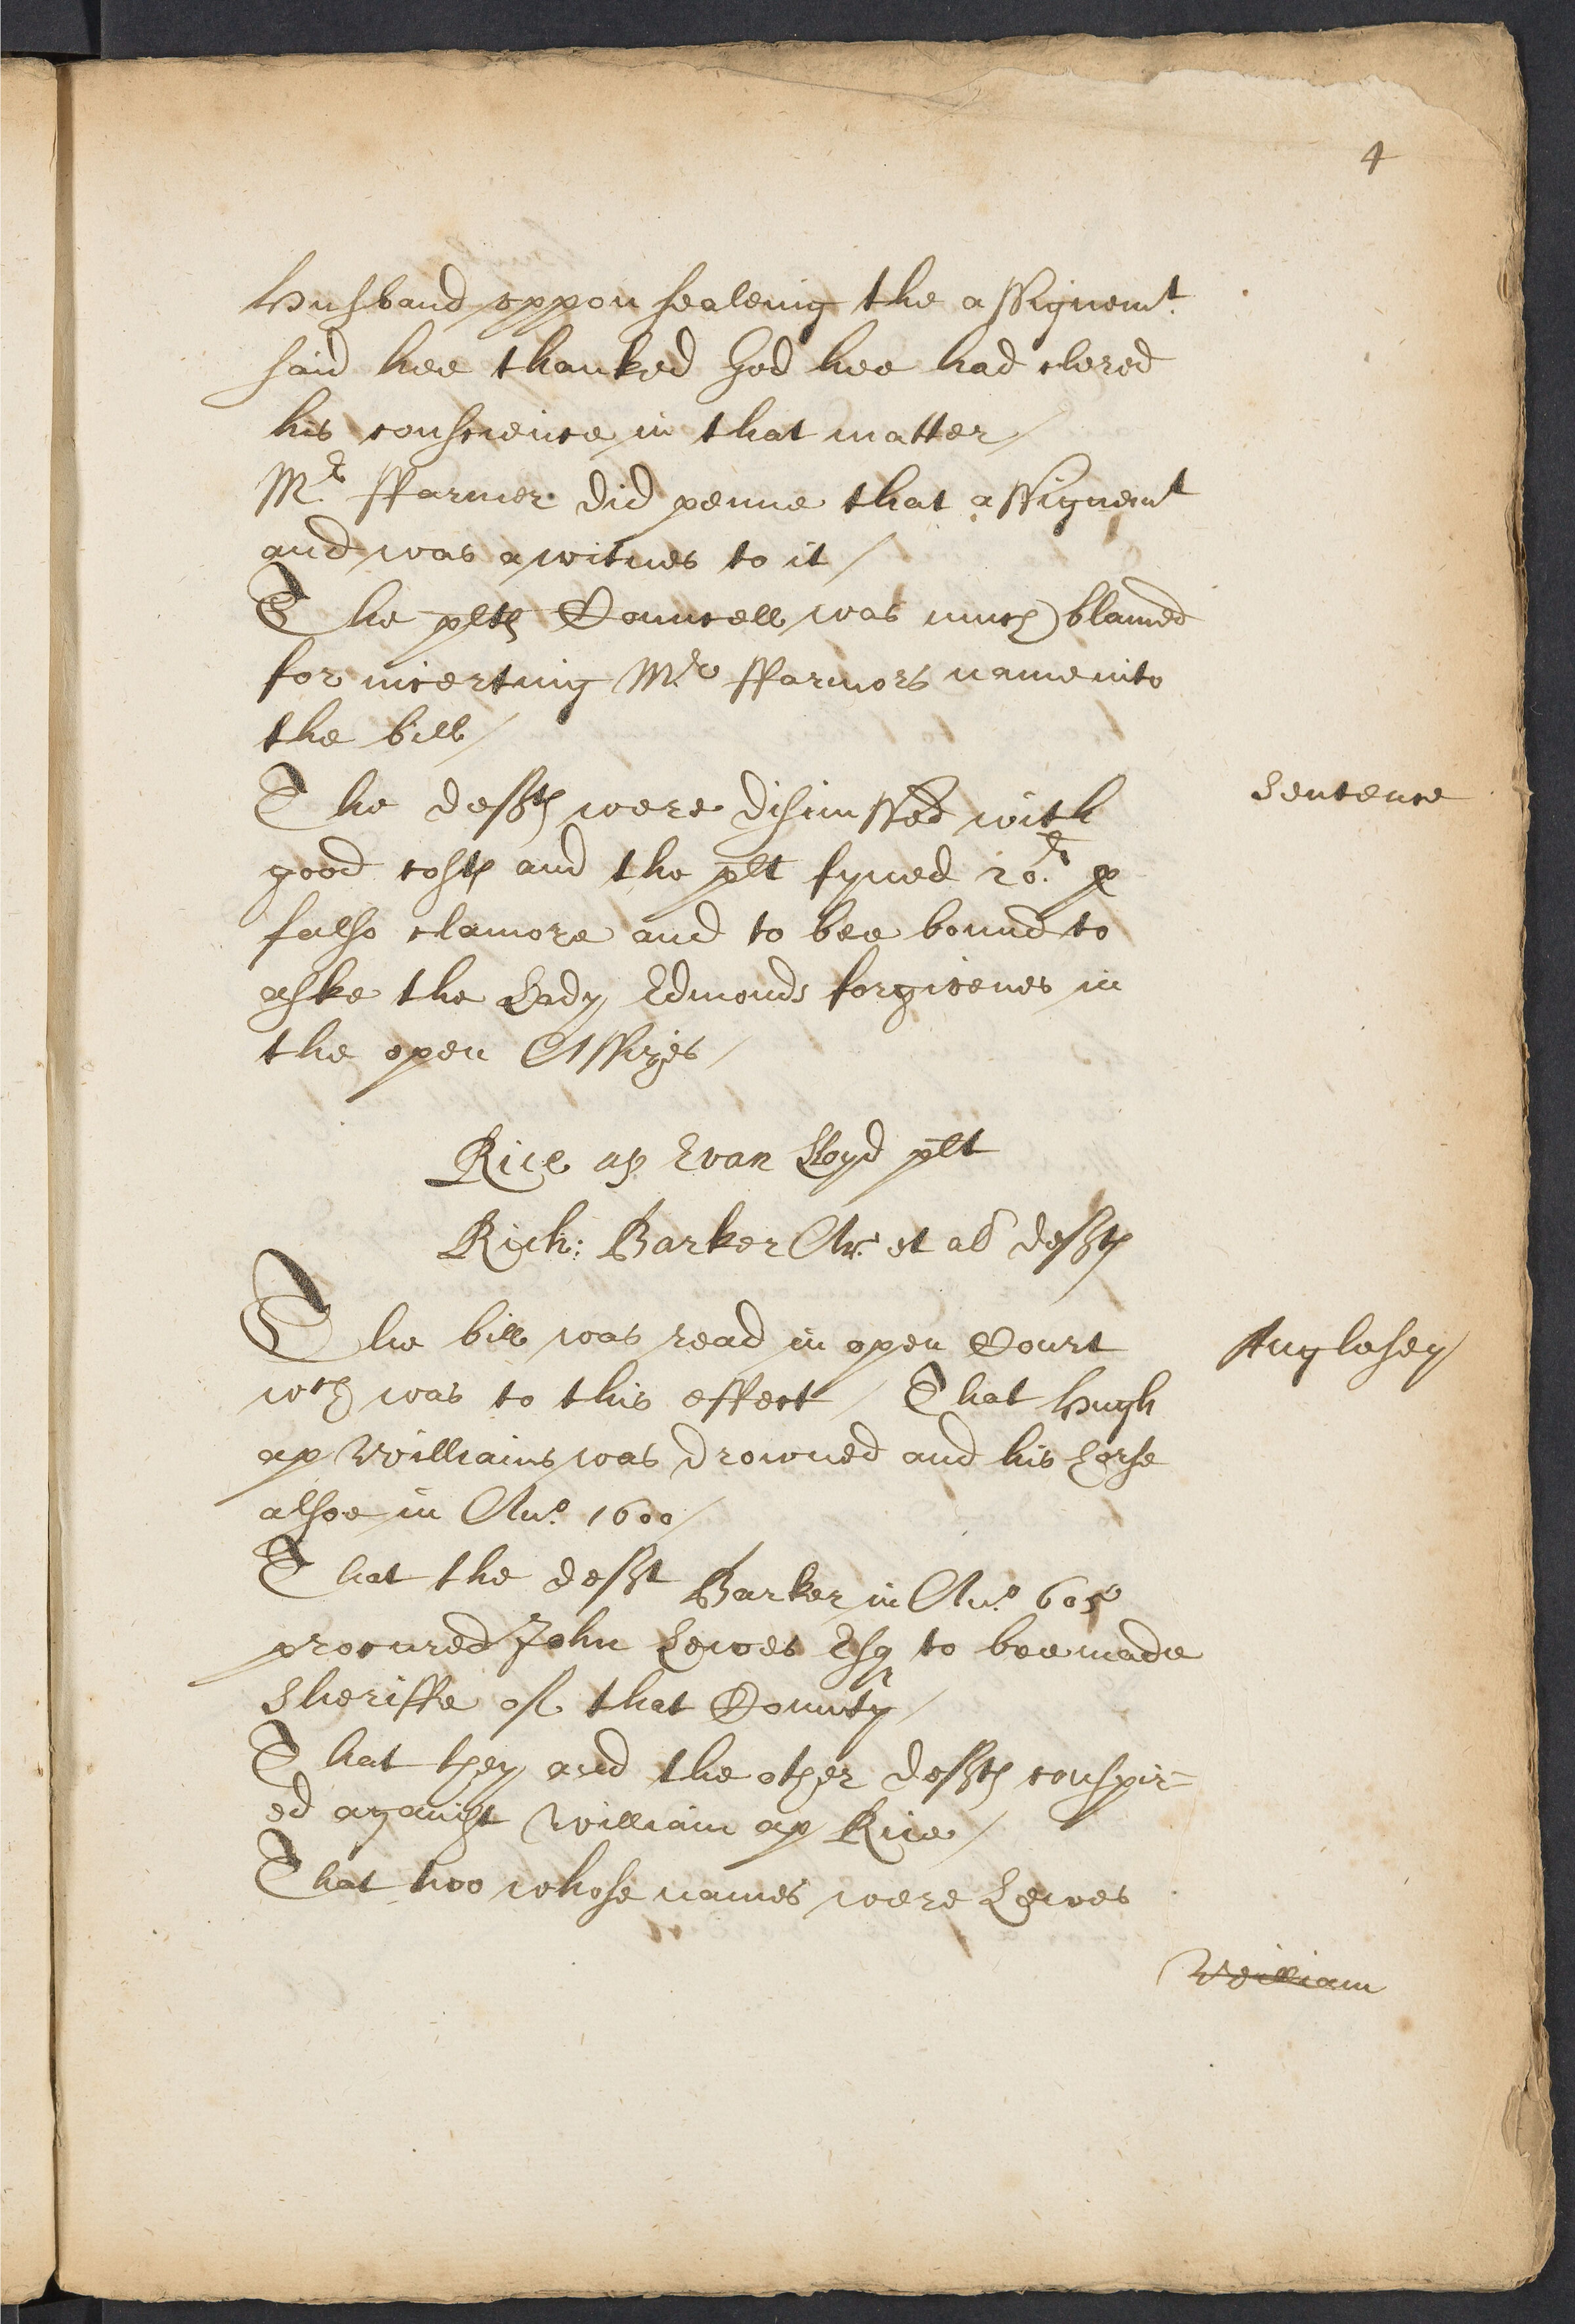 4
husband oppon sealeing the assignemt.
said hee thanked God hee had clered
his conscience in that matter /
Mr. ffarmer did penne that assignemt
and was a witnes to it /
The plts Councell was much blamed
for incerting Mr. ffarmors name into
the bill /
The defts were dismissed with
Sentence
good costs and the plt fyned 20.li p
falso clamore and to bee bound to
aske the Lady Edmonds forgivenes in
the open Assizes /
Rice ap Evan Lloyd plt
Rich: Barker Ar. et al defts
The bill was read in open Court
Anglesey
wch was to this effect / That Hugh
ap Williams was drowned and his horse
alsoe in Ano. 1600 /
That the deft Barker in Ano. 605
procured John Lewes Esq to bee made
Sheriffe of that County /
That they and the other defts conspir-
ed against William ap Rice /
That two whose names were Lewes
William